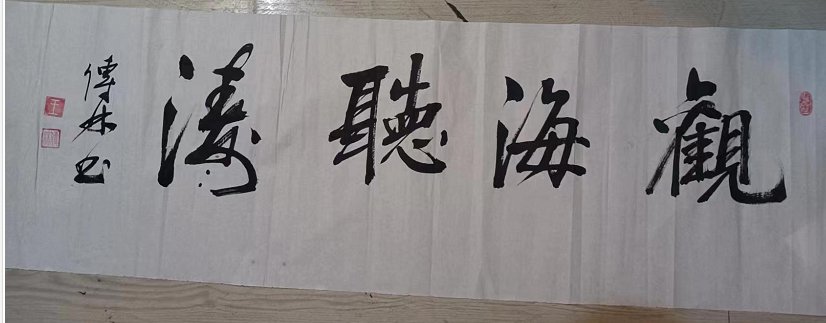 觀海聽濤
傳林书